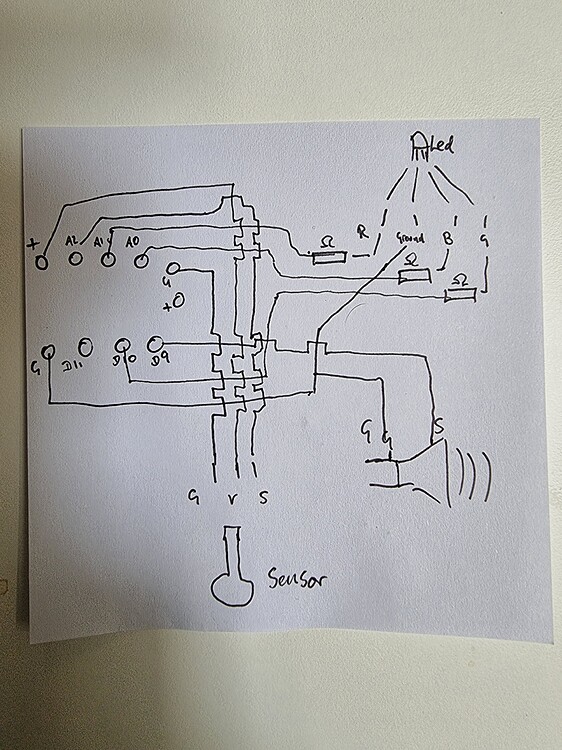 Led
R Ground B G
Ω
Ω
Ω
+ A2 A1 A0
G
+
G D11 D10 D9
G G S
G V S
Sensor